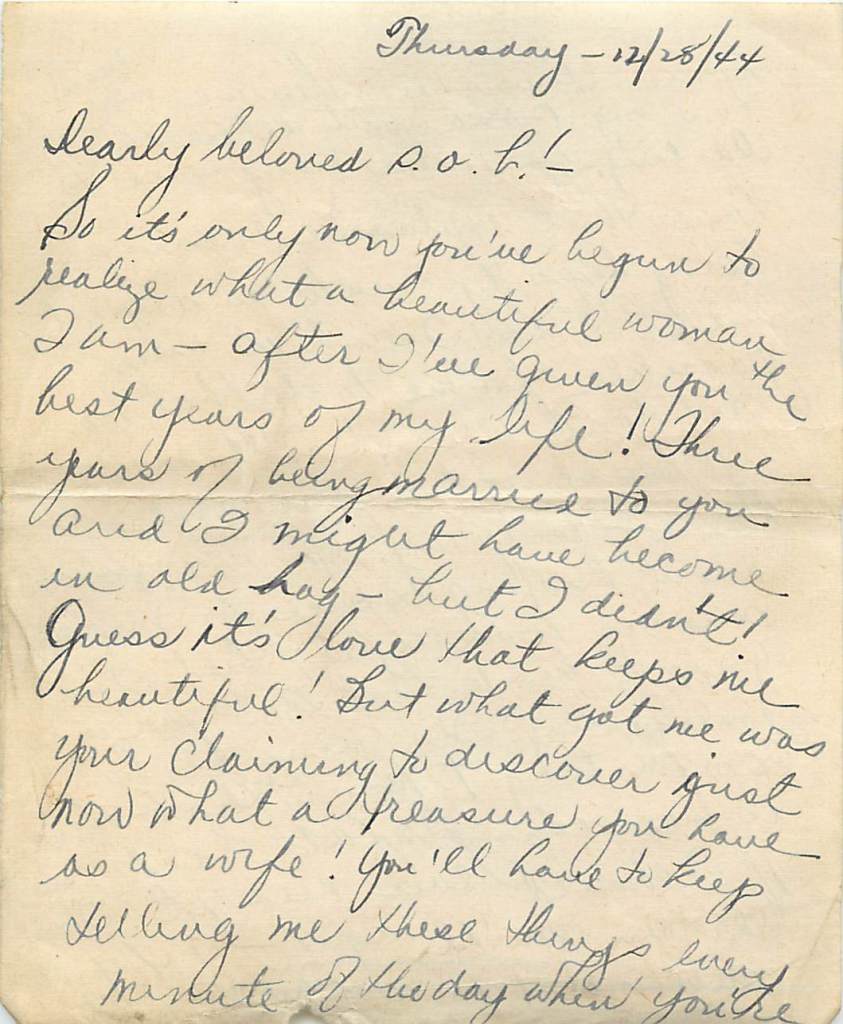 Thursday – 12/28/44
Dearly beloved s.o.b.! –
So it's only now you've begun to
realize what a beautiful woman
I am – after I've given you the
best years of my life! Three
years of being married to you
and I might have become
an old hag – but I didn't!
Guess it's love that keeps me
beautiful! But what got me was
your claiming to discover just
now what a treasure you have
as a wife! You'll have to keep
telling me these things every
minute of the day when you're